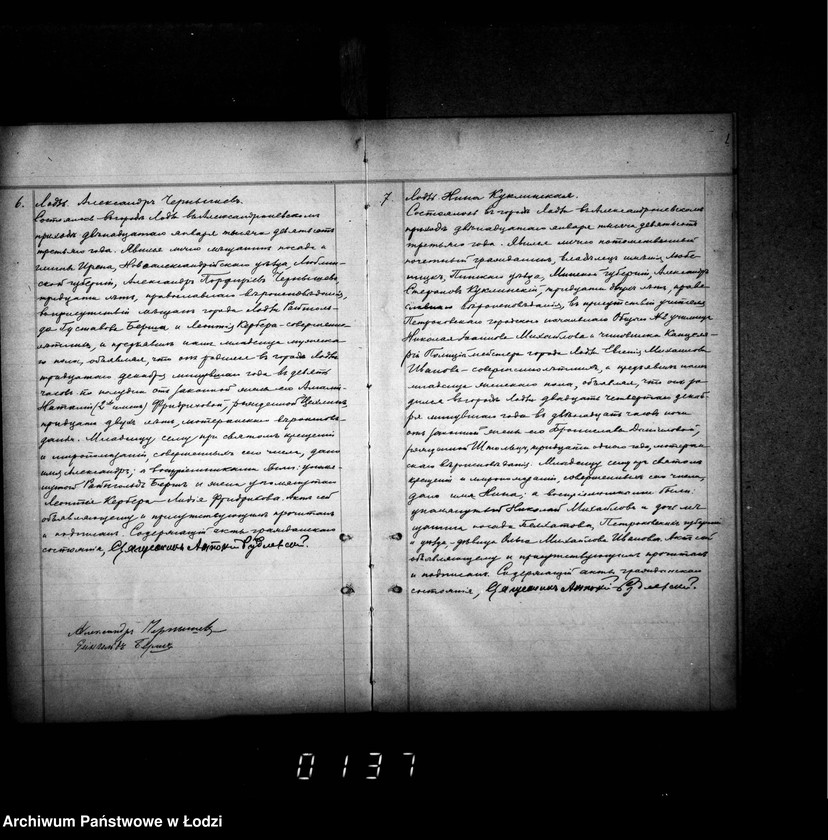 6. Лодзь. Александръ Чернышевъ.
Состоялось въ городѣ Лодзи въ Александроневскомъ
приходѣ двѣнадцатаго января тысяча девятьсотъ
третьяго года. Явился лично мѣщанинъ посада
Ирена, Новоалександрійскаго уѣзда, Люблин-
ской губерніи, Александръ Порфирьевъ Чернышевъ,
тридцати лѣтъ, православнаго вѣроисповѣданія,
въ присутствіи мѣщанъ города Лодзи Рейнголь-
да Густавова и Леонтія Кербера совершенно-
лѣтнихъ, и предъявилъ намъ младенца мужска-
го пола, объявляя, что онъ родился въ городѣ Лодзи
тридцатаго декабря минувшаго года въ девять
часовъ по полудни отъ законной жены его Амаліи
Наталіи (2хъ именъ) Фридриховой, рожденной
тридцати двухъ лѣтъ, лютеранскаго вѣроисповѣ-
данія. Младенцу сему при святомъ крещеніи
и миропомазаніи, совершенныхъ сего числа, дано
имя Александръ; а воспріемниками были: упомя-
нутый Рейнгольдъ и жена упомянутаго
Леонтія Кербера Лидія Фридрихова. Актъ сей
объявляющему и присутствующимъ прочитанъ
и подписанъ. Содержащій акты гражданскаго
состоянія, Священникъ Антоній Рудлевскій.
Александръ Чернышевъ
Рейнгольдъ
7. Лодзь. Нина Куклинская.
Состоялось въ городѣ Лодзи въ Александроневскомъ
приходѣ двѣнадцатаго января тысяча девятьсотъ
третьяго года. Явился лично потомственный
почетный гражданинъ, владѣлецъ имѣнія
Пинскаго уѣзда, Минской губерніи, Александръ
Степановъ Куклинскій, тридцати двухъ лѣтъ, право-
славнаго вѣроисповѣданія, въ присутствіи учителя
Петроковскаго городского начальнаго Общаго №2 училища
Николая Іванова Михайлова и чиновника Канцеля-
ріи Полиціймейстера города Лодзи Евгенія Михайлова
Иванова совершеннолѣтнихъ, и предъявилъ намъ
младенца женскаго пола, объявляя, что она ро-
дилась въ городѣ Лодзи двадцать четвертаго декаб-
ря минувшаго года въ двѣнадцать часовъ ночи
отъ законной жены его Брониславы
рожденной Штольцъ, тридцати одного года, лютеран-
скаго вѣроисповѣданія. Младенцу сему при святомъ
крещеніи и миропомазаніи, совершенныхъ сего числа,
дано имя Нина; а воспріемниками были:
упомянутый Николай Михайловъ и дочь мѣ-
щанина посада Белхатова, Петроковской губерніи
и уѣзда, дѣвица Михайлова Иванова. Актъ сей
объявляющему и присутствующимъ прочитанъ
и подписанъ. Содержащій акты гражданскаго
состоянія, Священникъ Антоній Рудлевскій.
0137
Archiwum Państwowe w Łodzi